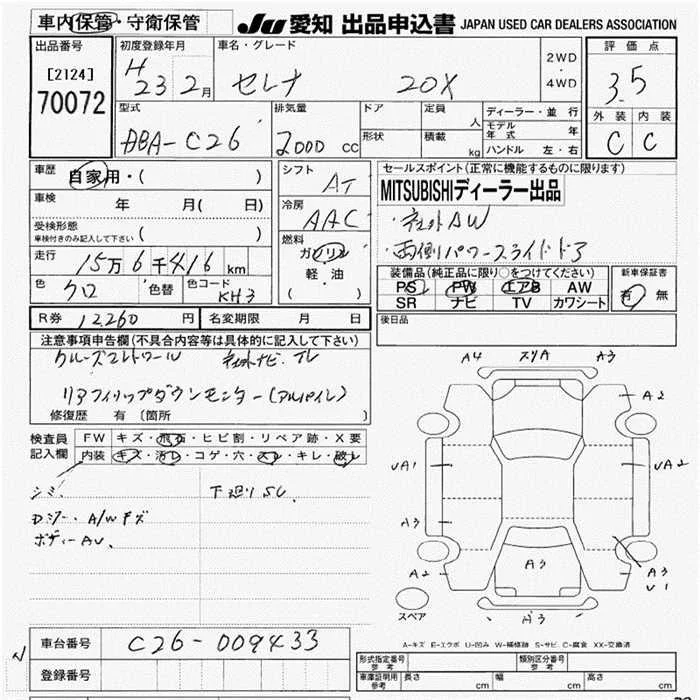 車内保管・守衛保管
JU 愛知 出品申込書 JAPAN USED CAR DEALERS ASSOCIATION
出品番号
[2124]
70072
初度登録年月
H 23 2月
車名・グレード
セレナ 20X
2WD
・
4WD
評価点
3.5
外装 内装
C C
型式
DBA-C26
排気量
2000 cc
ドア
形状
定員 人
積載 kg
ディーラー・並行
モデル年式 年
ハンドル 左・右
車歴
自家用・( )
車検
年 月( 日)
受検形態
車検付きのみ記入して下さい ( )
走行
15万6千416km
色
クロ
色替
色コード
KH3
シフト
AT
冷房
AAC
燃料
ガソリン
軽・油
( )
セールスポイント(正常に機能するものに限ります)
MITSUBISHIディーラー出品
・社外AW
・両側パワースライドドア
装備品(純正品に限り○をつけてください)
PS PW エアB AW
SR ナビ TV カワシート
新車保証書
有 無
R券 12260円
名変期限 月 日
後日品
注意事項申告欄(不具合内容等は具体的に記入して下さい)
クルーズコントロール 社外ナビ・TV
リアフィリップダウンモニター(アルパイン)
修復歴 有 〔箇所 〕
検査員
記入欄
FW キズ・飛石・ヒビ割・リペア跡・X要
内装 キズ・汚レ・コゲ・穴・スレ・キレ・破レ
シミ 下廻りSC
Dジー・A/Wキズ
ボディーAU、
A4 スリA A3
A2
UA1 UA2
A3
A3
A2 A3
U1
スペア
A3
車台番号
C26-009433
登録番号
A-キズ E-エクボ U-凹み W-補修跡 S-サビ C-腐食 XX-交換済
形式指定番号 参考
類別区分番号 参考
車庫証明用 参考
長さ cm
幅 cm
高さ cm